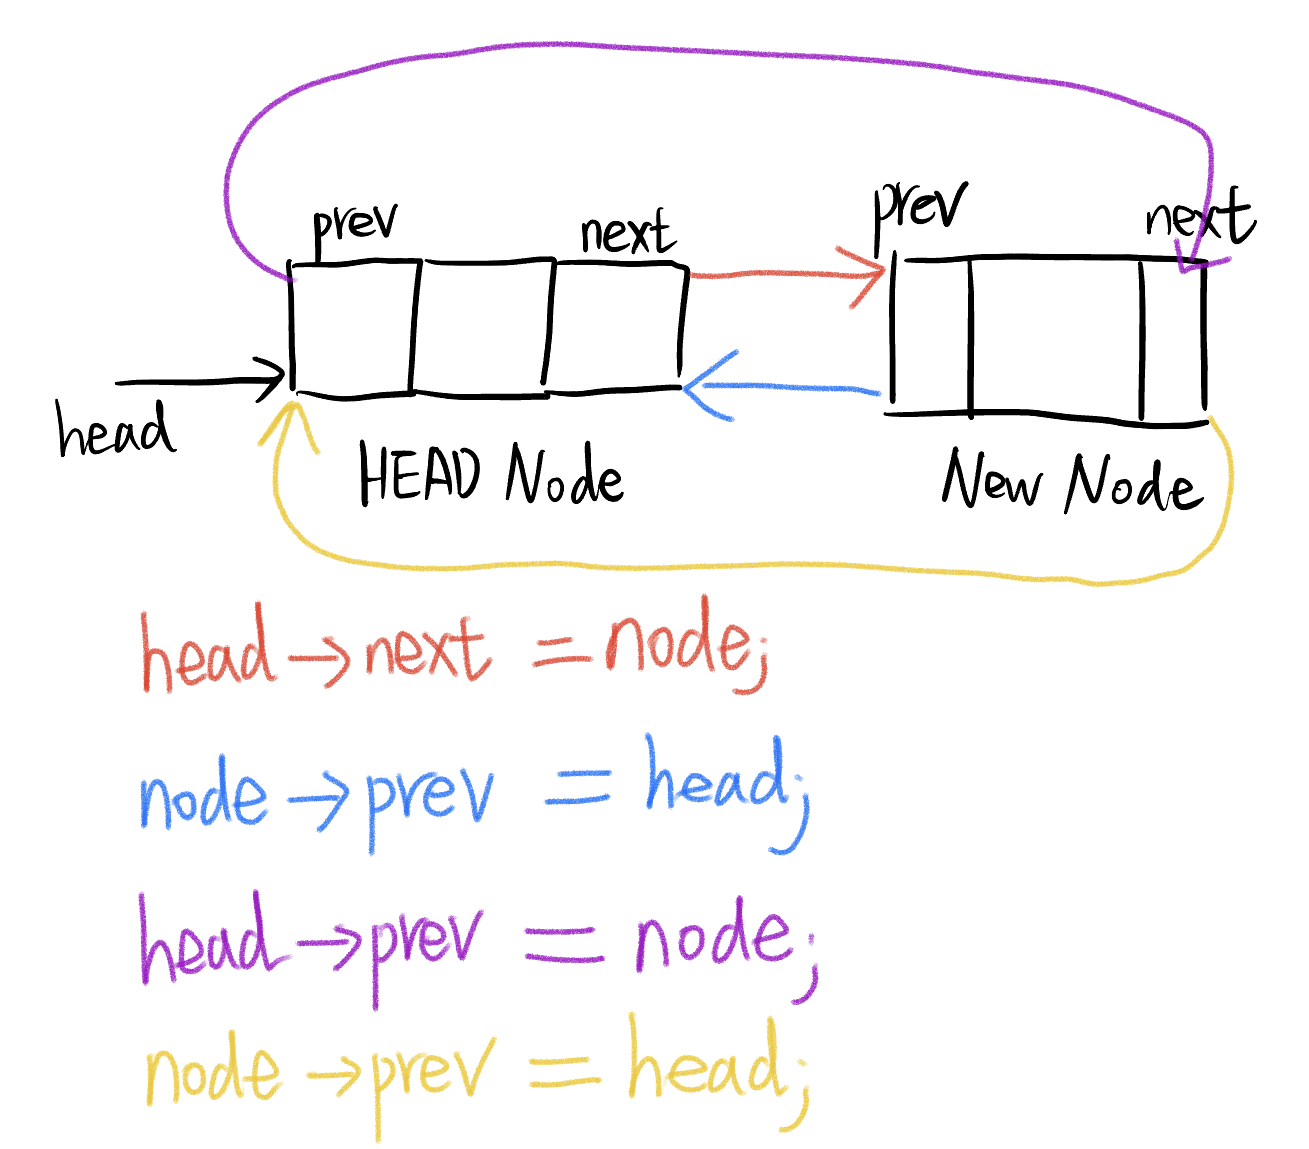 prev next prev next
head
HEAD Node New Node
head → next = node;
node → prev = head;
head → prev = node;
node → prev = head;